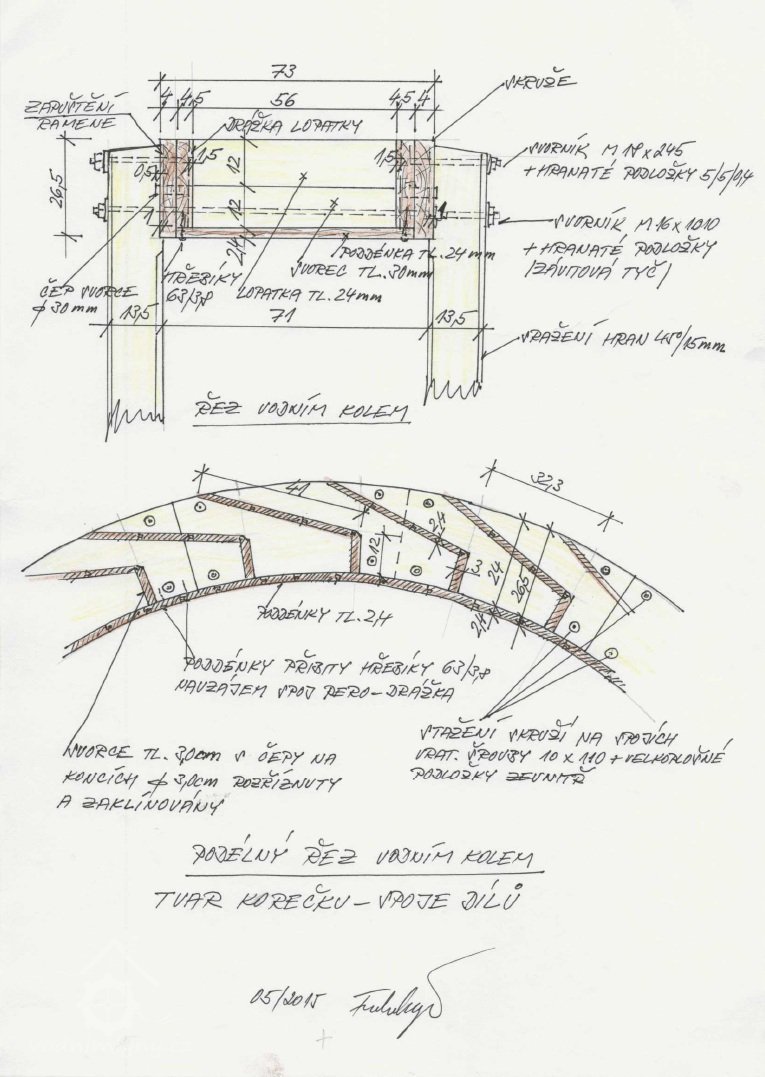 73
SKRUŽE
4 4,5 56 4,5 4
ZAPUŠTĚNÍ
RAMENE
DRÁŽKA LOPATKY
SVORNÍK M 18 x 245
+ HRANATÉ PODLOŽKY 5/5/0,4
0,5 1,5 12 1,5
26,5
12
2,4
1 1
SVORNÍK M 16 x 1010
+ HRANATÉ PODLOŽKY
/ZÁVITOVÁ TYČ/
PODDÉNKA TL. 24 mm
SVOREC TL. 30 mm
LOPATKA TL. 24 mm
HŘEBÍKY
63/3,8
ČEP SVORCE
ϕ 30 mm
13,5 71 13,5
SRAŽENÍ HRAN 45°/15mm
ŘEZ VODNÍM KOLEM
41
32,3
2,4
12
3
24
26,5
2,4
PODDÉNKY TL. 2,4
PODDÉNKY PŘIBITY HŘEBÍKY 63/3,8
NAVZÁJEM SPOJ PERO-DRÁŽKA
SVORCE TL. 3,0cm S ČEPY NA
KONCÍCH ϕ 3,0cm ROZŘÍZNUTY
A ZAKLÍNOVÁNY
STAŽENÍ SKRUŽÍ NA SPOJÍCH
VRAT. ŠROUBY 10 x 110 + VELKOPLOŠNÉ
PODLOŽKY ZEVNITŘ
PODÉLNÝ ŘEZ VODNÍM KOLEM
TVAR KOREČKU - SPOJE DÍLŮ
05/2015